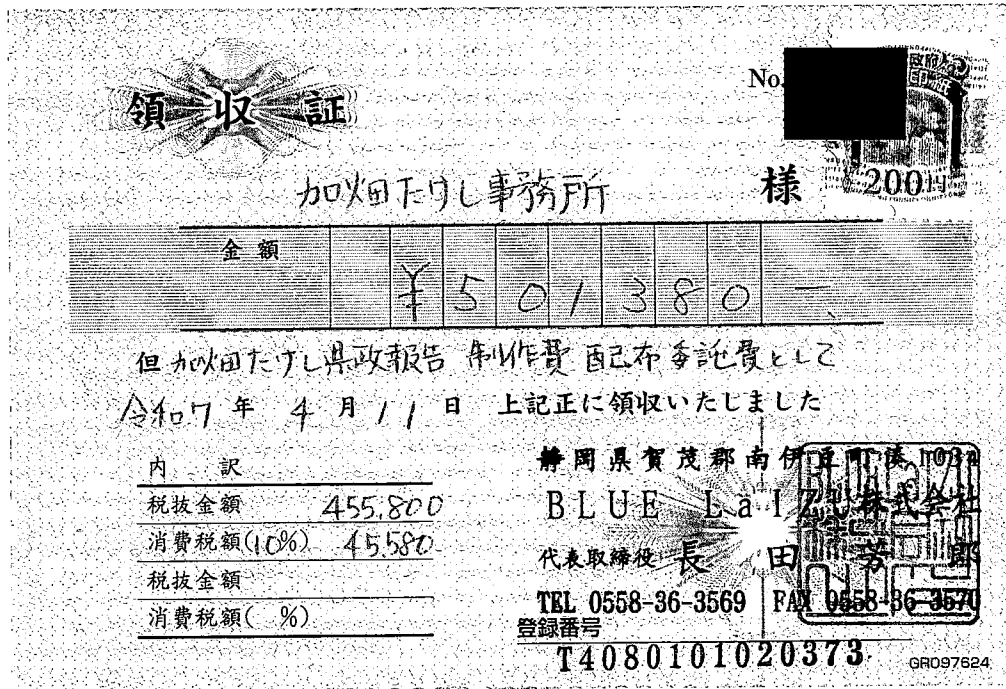 領収証
No.
200円
加畑たけし事務所 様
金額 ¥501380-
但 加畑たけし県政報告 制作費 配布委託費として
令和7年4月11日 上記正に領収いたしました
内訳
税抜金額 455,800
消費税額(10%) 45,580
税抜金額
消費税額( %)
静岡県賀茂郡南伊豆町湊1034
BLUE LaIZU株式会社
代表取締役 長田芳郎
TEL 0558-36-3569 FAX 0558-36-3570
登録番号
T4080101020373
GR097624